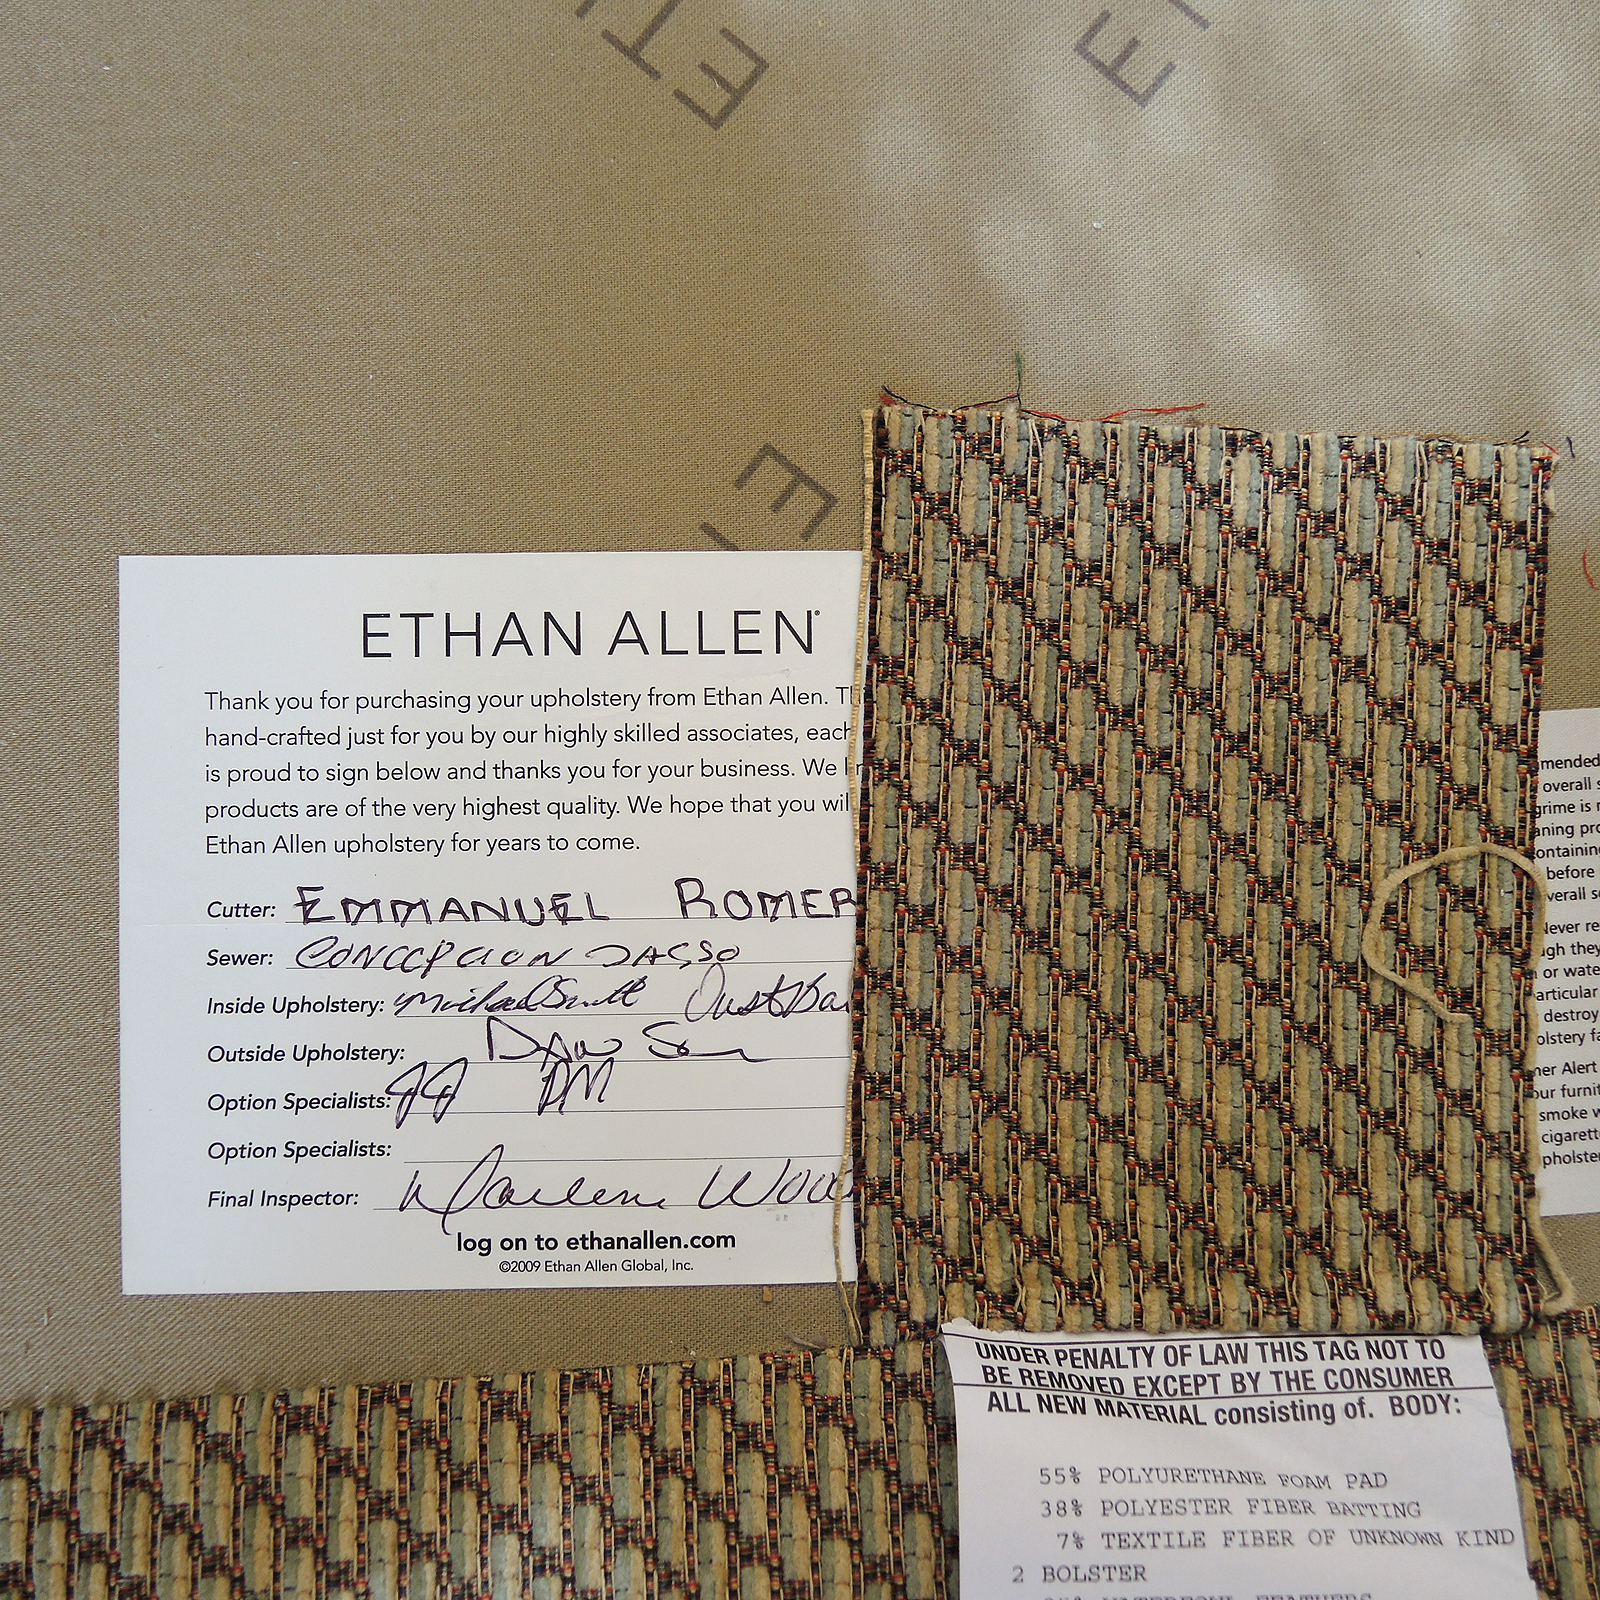 ETHAN ALLEN
Thank you for purchasing your upholstery from Ethan Allen.
hand-crafted just for you by our highly skilled associates, each
is proud to sign below and thanks you for your business. We
products are of the very highest quality. We hope that you wil
Ethan Allen upholstery for years to come.
Cutter: EMMANUEL ROMER
Sewer: CONCEPCION
Inside Upholstery: Michael Smith
Outside Upholstery:
Option Specialists: JJ DM
Option Specialists:
Final Inspector: Marlene Wood
log on to ethanallen.com
©2009 Ethan Allen Global, Inc.
mended
overall s
grime is
aning pro
ontaining
before
verall
Never re
gh they
or wate
articular
destroy
olstery fa
mer Alert
our furnit
smoke w
cigarett
pholster
UNDER PENALTY OF LAW THIS TAG NOT TO
BE REMOVED EXCEPT BY THE CONSUMER
ALL NEW MATERIAL consisting of. BODY:
55% POLYURETHANE FOAM PAD
38% POLYESTER FIBER BATTING
7% TEXTILE FIBER OF UNKNOWN KIND
2 BOLSTER